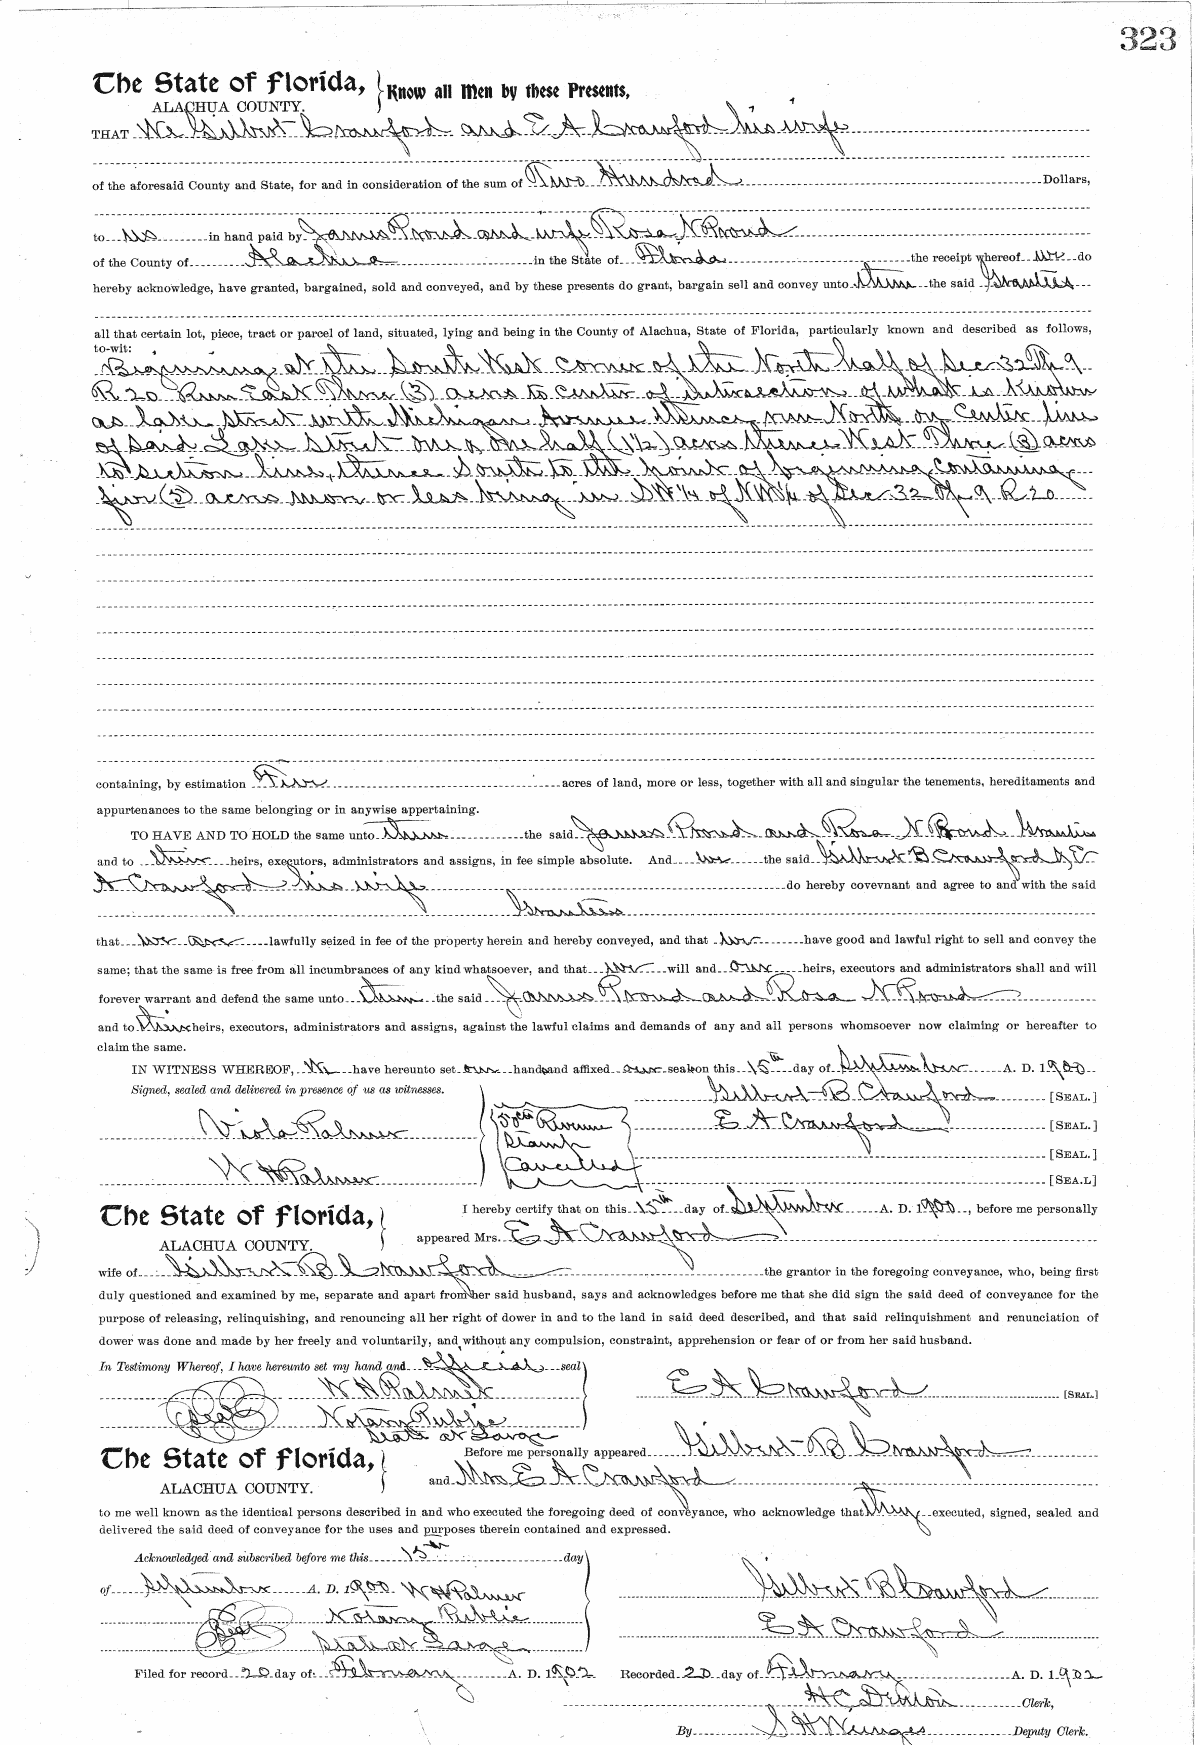 323
The State of Florida, Know all Men by these Presents,
ALACHUA COUNTY.
THAT We Gilbert Crawford and E A Crawford his wife
of the aforesaid County and State, for and in consideration of the sum of Two Hundred Dollars,
to us in hand paid by James Proud and wife Rosa N Proud
of the County of Alachua in the State of Florida the receipt whereof we do
hereby acknowledge, have granted, bargained, sold and conveyed, and by these presents do grant, bargain sell and convey unto them the said Grantees
all that certain lot, piece, tract or parcel of land, situated, lying and being in the County of Alachua, State of Florida, particularly known and described as follows,
to-wit:
Beginning at the South West corner of the North half of Sec 32 Tp 9
R 20 Run East Three (3) acres to center of intersection of what is known
as Lake Street with Michigan Avenue thence run North on Center line
of said Lake Street one & one half (1½) acres thence West Three (3) acres
to section line, thence South to the point of beginning, Containing
five (5) acres more or less being in SW ¼ of NW ¼ of Sec 32 Tp 9 R 20
containing, by estimation Five acres of land, more or less, together with all and singular the tenements, hereditaments and
appurtenances to the same belonging or in anywise appertaining.
TO HAVE AND TO HOLD the same unto them the said James Proud and Rosa N Proud Grantees
and to their heirs, executors, administrators and assigns, in fee simple absolute. And we the said Gilbert B Crawford & E
A Crawford his wife do hereby covevnant and agree to and with the said
Grantees
that we are lawfully seized in fee of the property herein and hereby conveyed, and that we have good and lawful right to sell and convey the
same; that the same is free from all incumbrances of any kind whatsoever, and that we will and our heirs, executors and administrators shall and will
forever warrant and defend the same unto them the said James Proud and Rosa N Proud
and to their heirs, executors, administrators and assigns, against the lawful claims and demands of any and all persons whomsoever now claiming or hereafter to
claim the same.
IN WITNESS WHEREOF, We have hereunto set our hands and affixed our seals on this 15th day of September A. D. 1900
Signed, sealed and delivered in presence of us as witnesses. Gilbert B Crawford [SEAL.]
Viola Palmer 50cts Revenue E A Crawford [SEAL.]
Stamp [SEAL.]
W H Palmer Cancelled [SEA.L]
The State of Florida, I hereby certify that on this 15th day of September A. D. 1900, before me personally
ALACHUA COUNTY. appeared Mrs. E A Crawford
wife of Gilbert B Crawford the grantor in the foregoing conveyance, who, being first
duly questioned and examined by me, separate and apart from her said husband, says and acknowledges before me that she did sign the said deed of conveyance for the
purpose of releasing, relinquishing, and renouncing all her right of dower in and to the land in said deed described, and that said relinquishment and renunciation of
dower was done and made by her freely and voluntarily, and without any compulsion, constraint, apprehension or fear of or from her said husband.
In Testimony Whereof, I have hereunto set my hand and official seal
W H Palmer E A Crawford [SEAL.]
Seal Notary Public
State at Large
The State of Florida, Before me personally appeared Gilbert B Crawford
ALACHUA COUNTY. and Mrs E A Crawford
to me well known as the identical persons described in and who executed the foregoing deed of conveyance, who acknowledge that they executed, signed, sealed and
delivered the said deed of conveyance for the uses and purposes therein contained and expressed.
Acknowledged and subscribed before me this 15th day
of September A. D. 1900 W H Palmer Gilbert B Crawford
Seal Notary Public E A Crawford
State at Large
Filed for record 20 day of February A. D. 1902 Recorded 20 day of February A. D. 1902
H C Denton Clerk,
By S H Wienges Deputy Clerk.